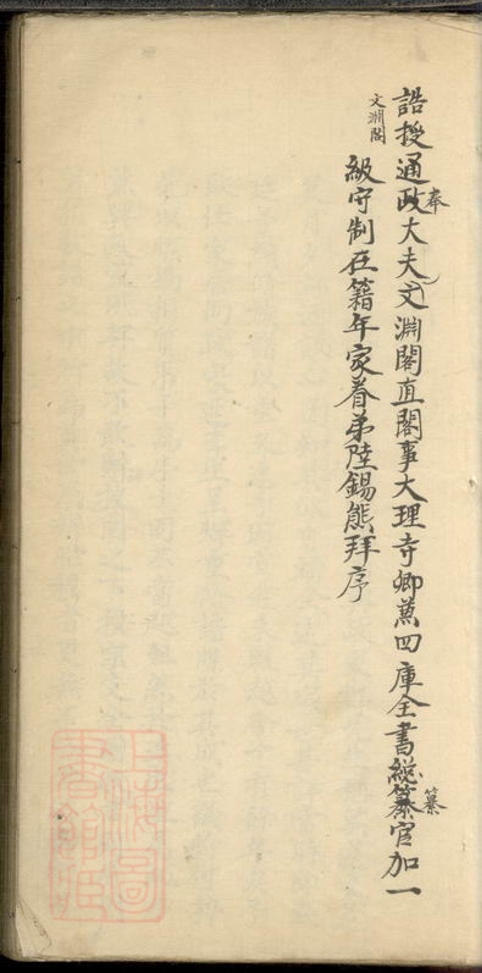 誥授通政大夫文淵閣直閣事大理寺卿兼四庫全書総纂官加一
奉
纂
文淵閣
級守制在籍年家眷弟陸錫熊拜序
上海圖
書館臧